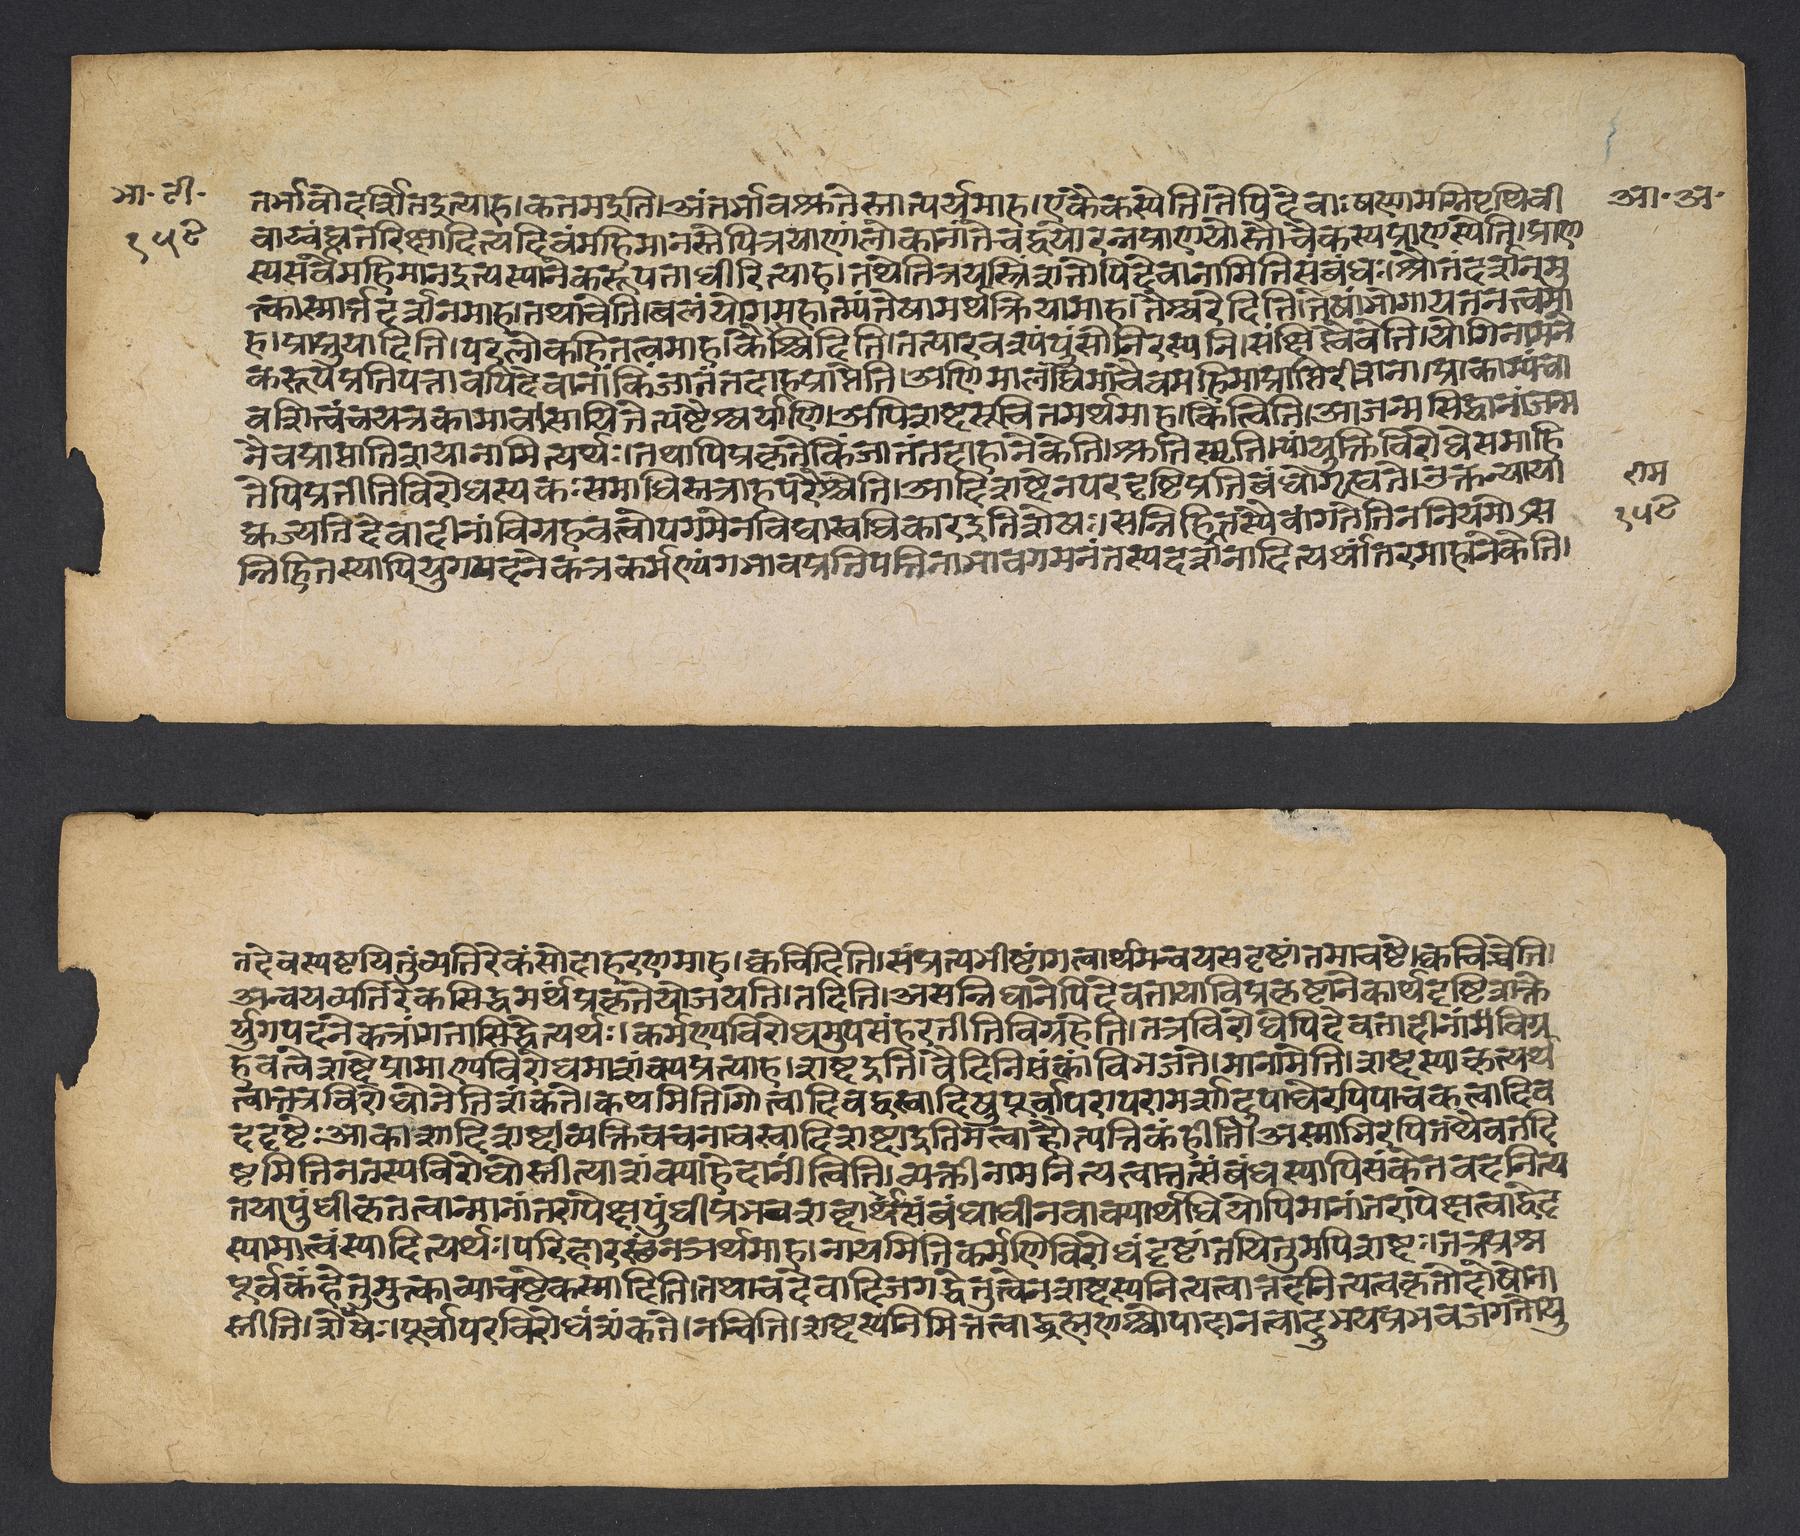 भा॰ टी॰
१५९
आ॰ अ॰
तर्भावो दर्शित इत्याह। कतम इति। अंतर्भावश्रुतेस्तात्पर्यमाह। एकैकस्येति। तेपि देवाः षण्णामग्निपृथिवी
वाय्वंतरिक्षादित्यदिवं महिमानस्तेपि त्रयाणां लोकानां ते च द्वयोरन्नप्राणयोस्तौ चैकस्य प्राणस्येति। प्राण
स्य सर्वे महिमान इत्यस्यानेकरूपता धीरित्याह। तथेति त्रयस्त्रिंशतोपि देवानामिति संबंधः। श्रौतदर्शनमु
त्का स्मार्त्तदर्शनमाह। तथा चेति। बलं योगमहात्म्यं तेषामर्थक्रियामाह। तैश्चरेदिति। तेषां भोगायतनत्वमा
ह। प्राप्नुयादिति। परलोकहितत्वमाह। कैश्चिदिति। तत्पारवश्यं पुंसो निरस्यति। संक्षिपेच्चेति। योगिनामने
करूपप्रतिपत्तावपि देवानां किं जातं तदाह प्राप्तेति। अणिमा लघिमा चैव महिमा प्राप्तिरीशता। प्राकाम्यं चा
वशित्वं च यत्र कामावसायितेत्यष्टैश्वर्याणि। अपिशब्दसूचितमर्थमाह। किंत्विति। आजन्मसिद्धानां जन्म
नैव प्राप्तातिशयानामित्यर्थः। तथापि प्रकृते किं जातं तदाहानेकेति। श्रुतिस्मृतिभ्यां युक्तिविरोधे समाहि
तेपि प्रतीतिविरोधस्य कः समाधिस्तत्राह परैश्चेति। आदिशब्देन परदृष्टिप्रतिबंधो गृह्यते। उक्तन्यायो
राम
१५९
द्युज्यते देवादीनां विग्रहवत्वोपगमेन विद्यास्वधिकार इति शेषः। सन्निहितस्यैवांगतेति न नियमोऽस
न्निहितस्यापि युगपदनेकत्र कर्मण्यंगभावप्रतिपत्तिनामावगमनं तस्य दर्शनादित्यर्थांतरमाहानेकेति।
तदेव स्पष्टयितुं व्यतिरेकं सोदाहरणमाह। क्वचिदिति। संप्रत्यभीष्टांगत्वार्थमन्वयसदृष्टांतमाचष्टे। क्वचिच्चेति।
अन्वयव्यतिरेकसिद्धमर्थं प्रकृते योजयति। तदिति। असन्निधानेपि देवताया विप्रकृष्टानेकार्थदृष्टिशक्ते
र्युगपदनेकत्रांगतासिद्धेत्यर्थः। कर्मण्यविरोधमुपसंहरतीति विग्रहेति। तत्र विरोधेपि देवतादीनां विग्र
हवत्वे शब्दप्रामाण्यविरोधमाशंक्य प्रत्याह। शब्द इति। वेदिनि शंकां विभजते। मानामेति। शब्दस्याकृत्यर्थ
त्वात्तत्र विरोधो नेति शंकते। कथमिति। गोत्वादिवद्वस्वादिषु पूर्वापरापरामर्शादुपाधेरपि पाचकत्वादिव
ददृष्टेः आकाशादिशब्दा व्यक्तिवचना वस्वादिशब्दा इति मत्वाहौत्पत्तिकं हीति। अस्माभिरपि तथैव तदि
ष्टमिति न तस्य विरोधोस्तीत्याशंक्याहेदानीं त्विति। व्यक्तीनामनित्यत्वात्तत्संबंधस्यापि संकेतवदनित्य
तया पुंधीकृतत्वान्मानांतरापेक्ष पुंधीप्रभवशब्दार्थसंबंधाधीनवाक्यार्थधियोपि मानांतरापेक्षत्वाद्वेद
स्यामात्वं स्यादित्यर्थः। परिहारसूत्रं अर्थमाह। नायमिति कर्मणि विरोधं दृष्टांतयितुमपिशब्दः। तत्र प्रश्न
पूर्वकं हेतुमुत्का व्याचष्टे कस्मादिति। तथा च देवादिजगद्धेतुत्वेन शब्दस्य नित्यत्वान्न तदनित्यत्वकृतो दोषोना
स्तीति। शेषः। पूर्वापरविरोधं शंकते। नन्विति। शब्दस्य निमित्तत्वाद्ब्रह्मणश्चोपादानत्वादुभयप्रभवजगतो यु